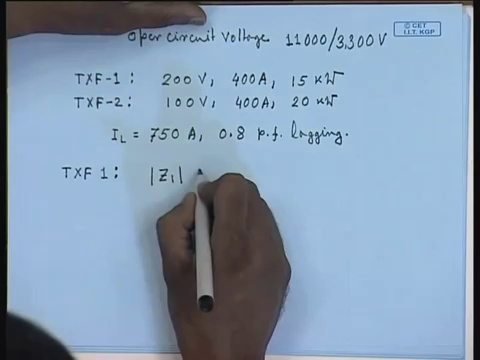 Open circuit Voltage 11000/3,300V
© CET
I.I.T. KGP
TXF-1: 200 V, 400A, 15 KW
TXF-2: 100 V, 400A, 20 KW
IL = 750 A, 0.8 p.f. lagging.
TXF 1: |Z1|